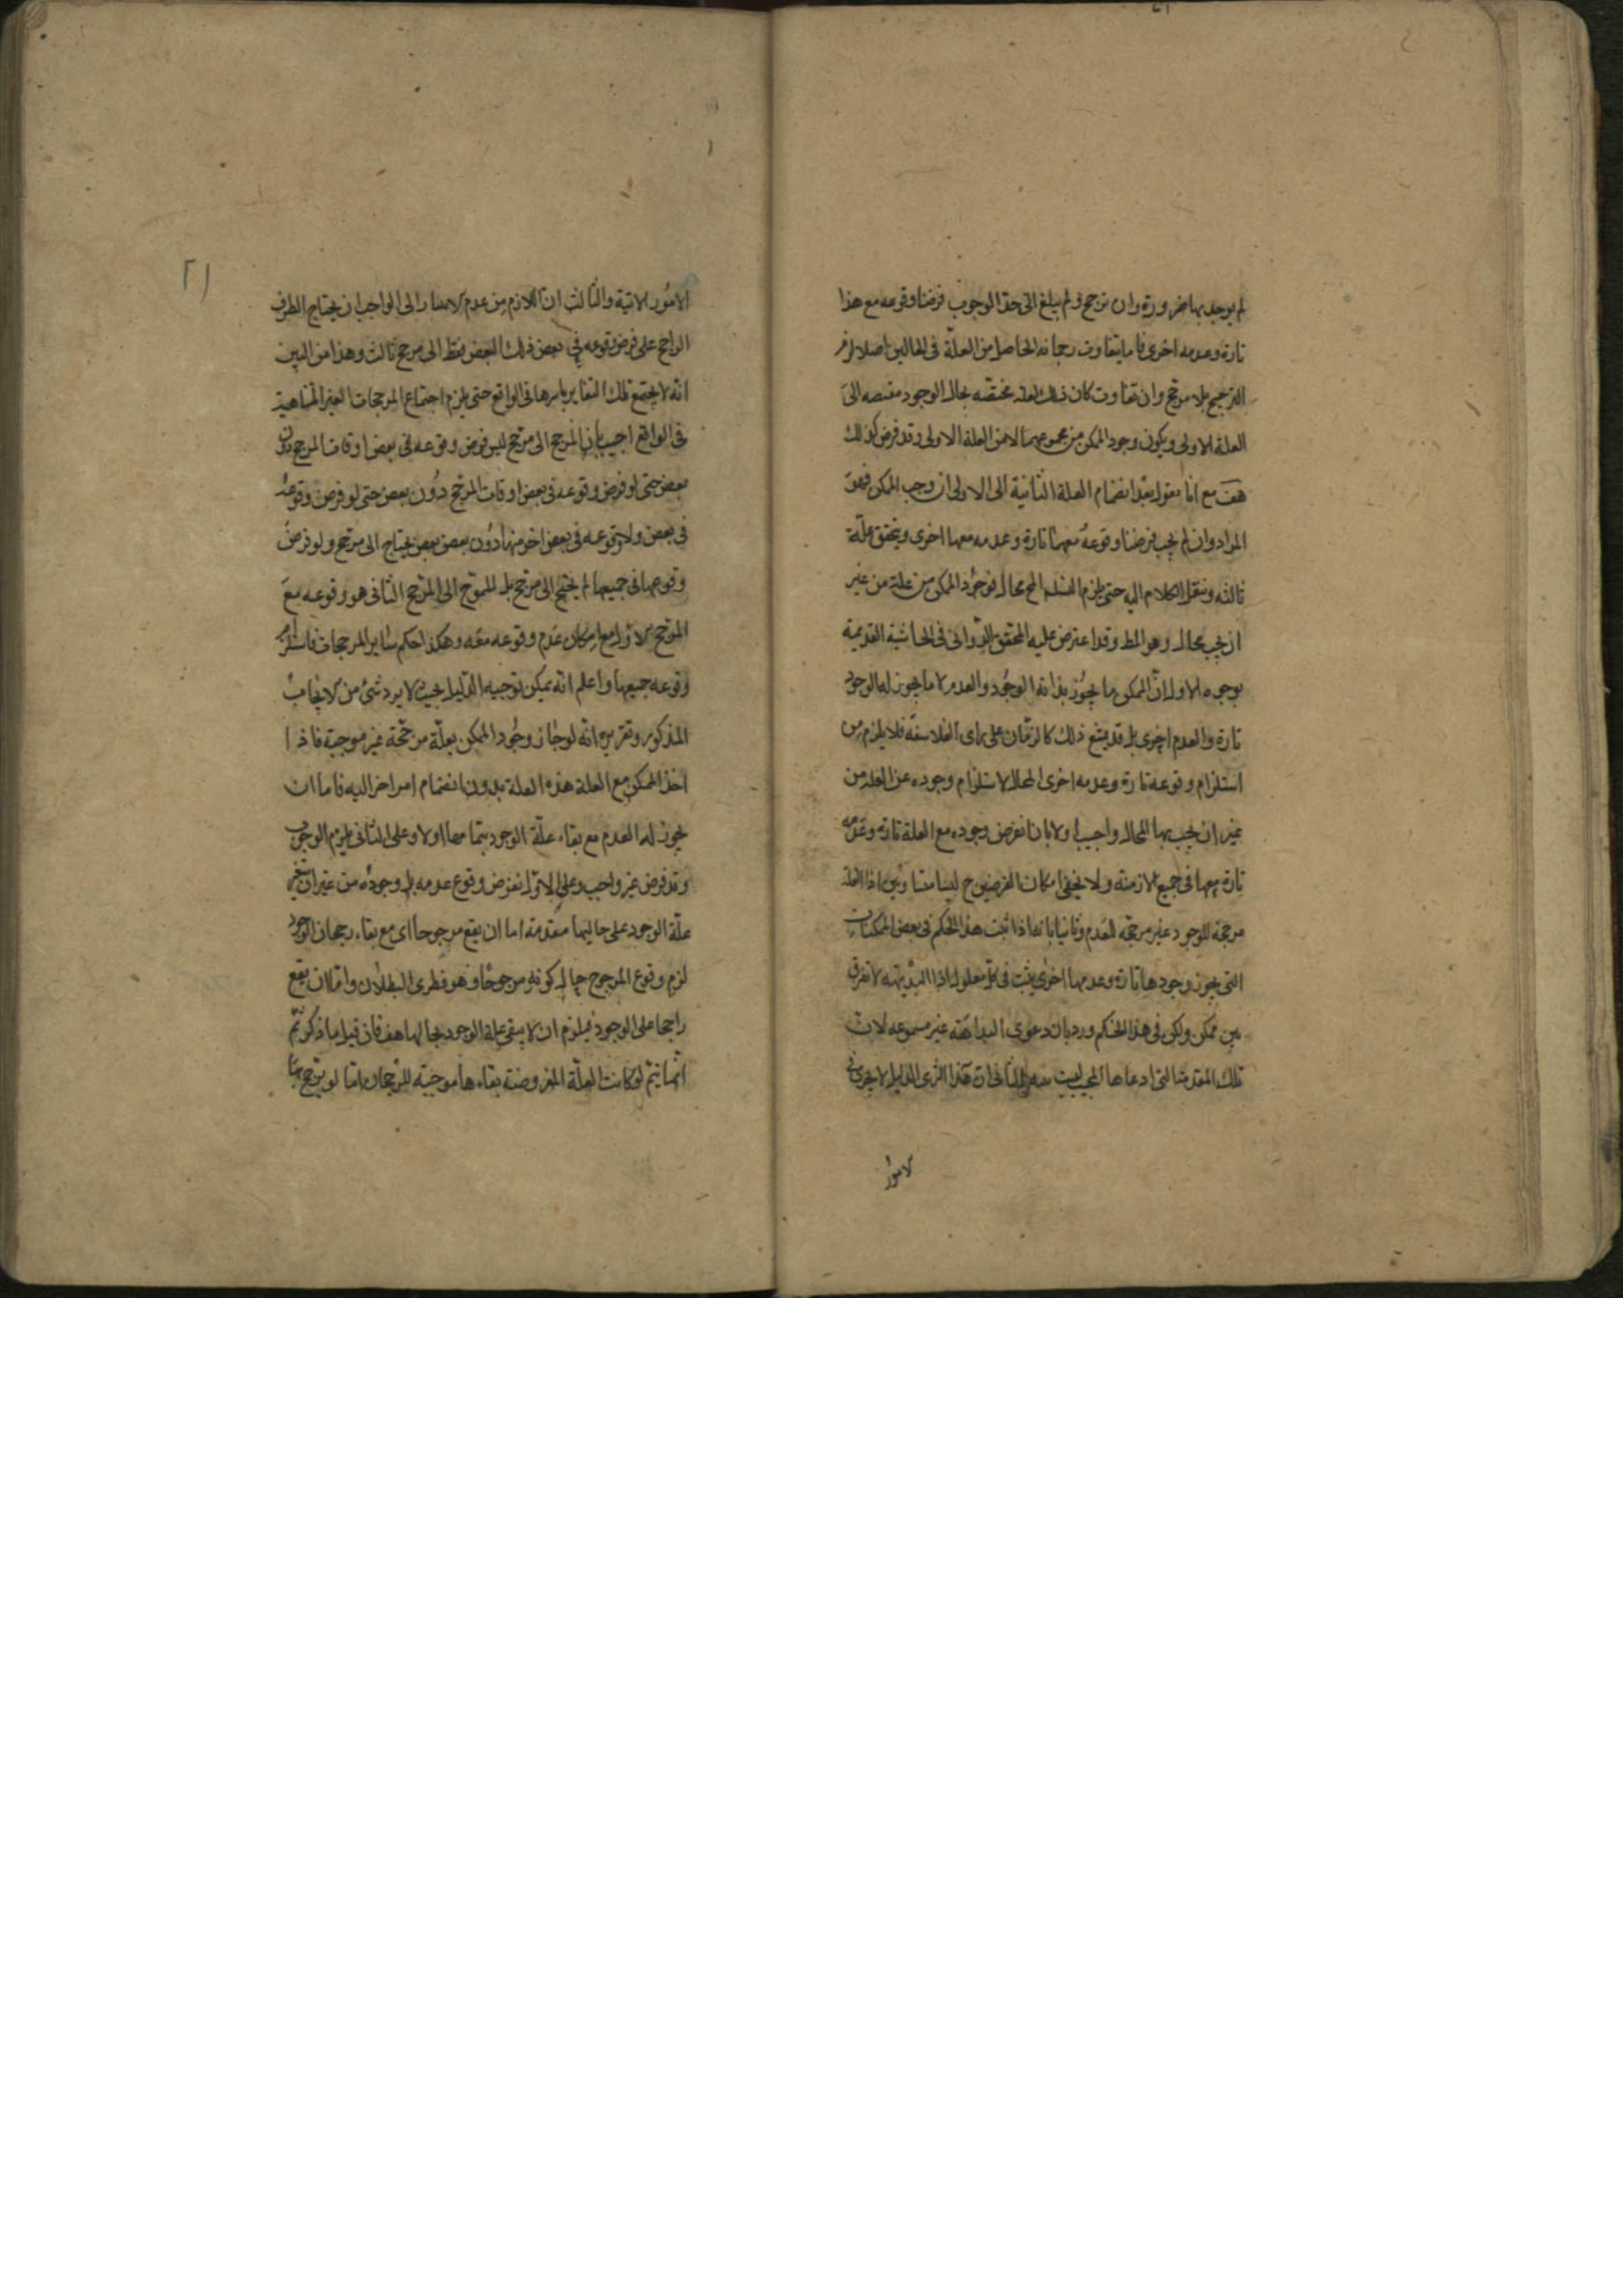 لم يوجد بها ضرورة وان ترجح ولم يبلغ الى حد الوجوب فرضنا وقوعه مع هذا
تارة وعدمه اخرى فاما يتفاوت رجحانه الحاصل من العلة فى الحالين اصلا لزم
الترجيح بلا مرجح وان تفاوت كان ذلك لعلة مختصه بحال الوجود منضمه الى
العلة الاولى ويكون وجود الممكن من مجموعهما لا من العلة الاولى وقد فرض كذلك
هف مع انا نقول بعد انضمام العلة الثانية الى الاولى ان وجب الممكن فهو
المراد وان لم يجب فرضنا وقوعه معهما تارة وعدمه معهما اخرى ويتحقق علة
ثالثه وننقل الكلام اليه حتى يلزم التسلسل المح محال فوجود الممكن من علة من غير
ان يجب محال وهو المط وقد اعترض عليه المحقق الدوانى فى الحاشية القديمة
بوجوه الاول ان الممكن ما يجوز بذاته الوجود والعدم لا ما يجوز له الوجود
تارة والعدم اخرى بل قد يمتنع ذلك كالزمان على راى الفلاسفه فلا يلزم من
استلزام وقوعه تارة وعدمه اخرى المحال استلزام وجوده عن العلة من
غير ان يجب بها المحال واجيب اولا بانا نفرض وجوده مع العلة تارة وعدمه
تارة معها فى جميع الازمنة ولا يخفى امكان الفرضين ح ليسا متساويين اذ العلة
مرجحة للوجود غير مرجحه للعدم وثانيا بانه اذا ثبت هذا الحكم فى بعض الممكنات
التى يجوز وجودها تارة وعدمها اخرى يثبت فى كل معلول اذ البديهة لا تفرق
بين ممكن وممكن فى هذا الحكم ورد بان دعوى البداهة غير مسموعه لان
تلك المقدمة التى ادعاها المجيب ليست الثانى ان هذا الدليل لا يجرى فى
الامور
٢١
الامور الاتية والثالث ان اللازم من عدم الى الواجب ان يحتاج الطرف
الراجح على فرض وقوعه فى بعض ذلك البعض فقط الى مرجح ثالث وهذا من البين
انه لا يجتمع تلك التقادير باسرها فى الواقع حتى يلزم اجتماع المرجحات الغير المتناهية
فى الواقع اجيب بان المرجح الى مرجح ليس فرض وقوعه فى بعض اوقات المرجح دون
بعض حتى لو فرض وقوعه فى بعض اوقات المرجح دون بعض حتى لو فرض وقوعه
فى بعض ولا وقوعه فى بعض اخر منها دون بعض بعض يحتاج الى مرجح ولو فرض
وقوعها فى جميعها لم يحتج الى مرجح بل المحوج الى المرجح الثانى هو وقوعه مع
المرجح الاول مع امكان عدم وقوعه معه وهكذا حكم ساير المرجحات فاستلزم
وقوعه جميعها واعلم انه يمكن توجيه الدليل بحيث لا يرد شئ من الابحاث
المذكور وتقريره انه لو جاز وجود الممكن بعلة مرجحة غير موجبة فاذا
اخذ الممكن مع العلة هذه العلة بدون انضمام امر اخر اليه فاما ان
يجوز له العدم مع بقاء علة الوجود بتمامها اولا وعلى الثانى يلزم الوجوب
وقد فرض غير واجب وعلى الاول نفرض وقوع عدمه بل وجوده من غير ان يتغير
علة الوجود على حاليها متقدمة اما ان يقع مرجوحا اى مع بقاء رجحان الوجود
لزم وقوع المرجوح حال كونه مرجوحا وهو فطرى البطلان واما ان يقع
راجحا على الوجود فيلزم ان لا يبقى علة الوجود بحالها هف فان قيل ما ذكرتم
انما يتم لو كانت العلة المفروضة بقاءها موجبة للرجحان اما لو ترجح بها